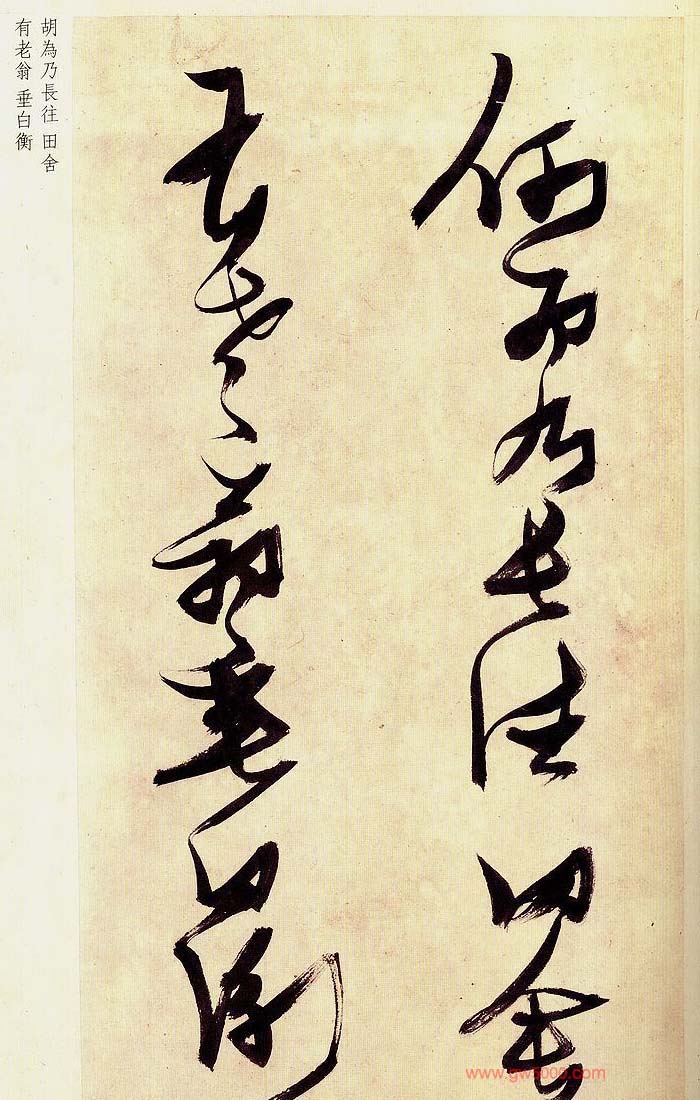 胡為乃長往田舍
有老翁垂白衡
胡為乃長往 田舍
有老翁 垂白衡